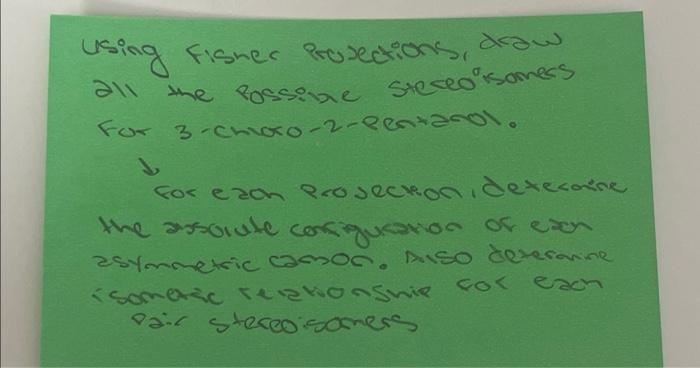 Using Fisher Projections, draw
all the Possible Stereoisomers
For 3-Chloro-2-Pentanol.
↓
For each Projection, determine
the absolute configuration of each
asymmetric carbon. Also determine
isomeric relationship for each
Pair stereoisomers